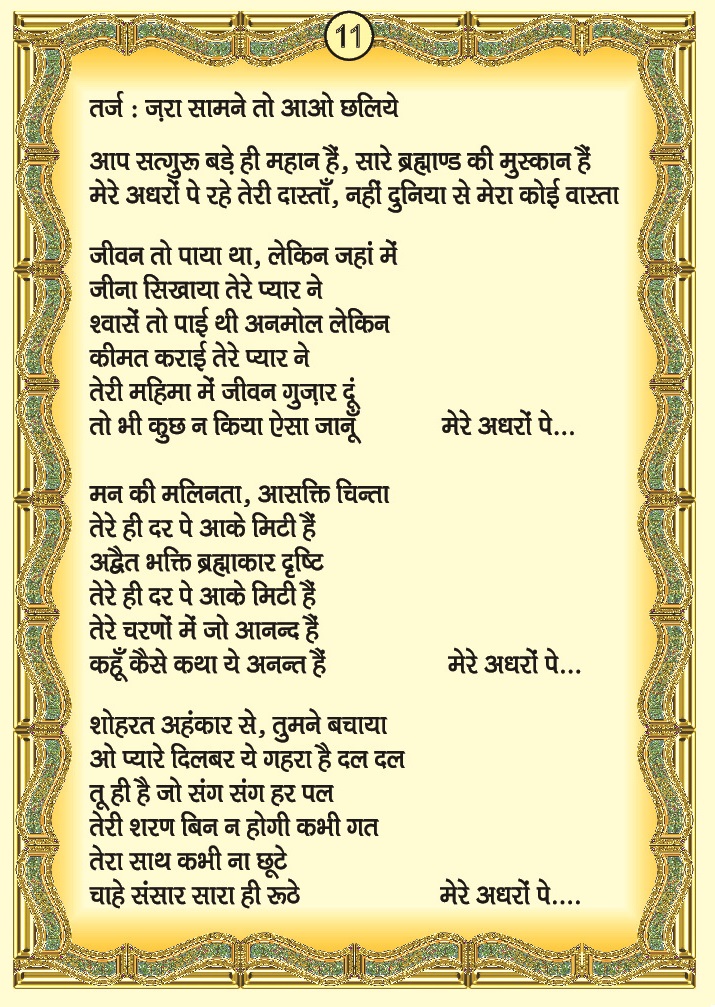 11
तर्ज : ज़रा सामने तो आओ छलिये
आप सत्गुरू बड़े ही महान हैं, सारे ब्रह्माण्ड की मुस्कान हैं
मेरे अधरों पे रहे तेरी दास्ताँ, नहीं दुनिया से मेरा कोई वास्ता
जीवन तो पाया था, लेकिन जहां में
जीना सिखाया तेरे प्यार ने
श्वासें तो पाई थी अनमोल लेकिन
कीमत कराई तेरे प्यार ने
तेरी महिमा में जीवन गुज़ार दूं
तो भी कुछ न किया ऐसा जानूँ मेरे अधरों पे...
मन की मलिनता, आसक्ति चिन्ता
तेरे ही दर पे आके मिटी हैं
अद्वैत भक्ति ब्रह्माकार दृष्टि
तेरे ही दर पे आके मिटी हैं
तेरे चरणों में जो आनन्द हैं
कहूँ कैसे कथा ये अनन्त हैं मेरे अधरों पे...
शोहरत अहंकार से, तुमने बचाया
ओ प्यारे दिलबर ये गहरा है दल दल
तू ही है जो संग संग हर पल
तेरी शरण बिन न होगी कभी गत
तेरा साथ कभी ना छूटे
चाहे संसार सारा ही रूठे मेरे अधरों पे....